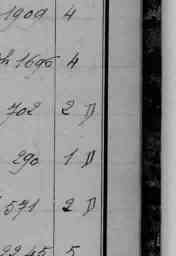 1909 4
1696 4
702 2 D
290 1 D
571 2 D
2245 5